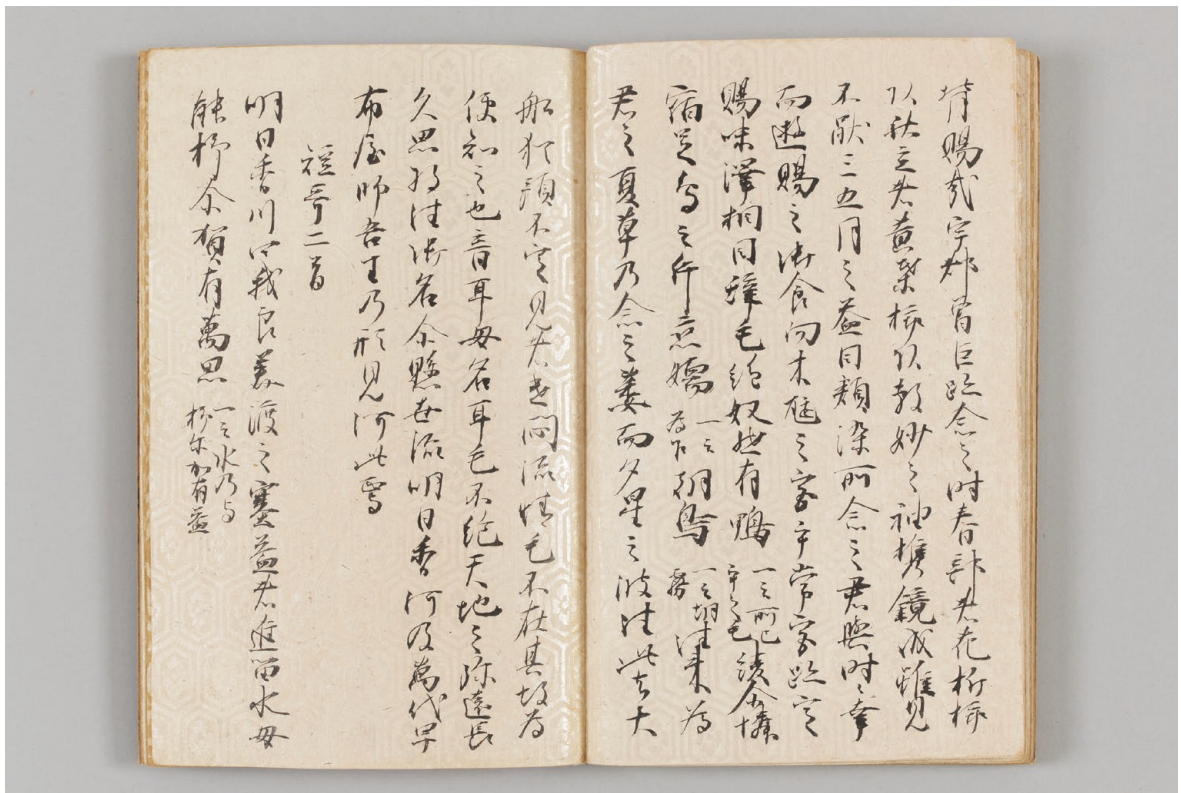 背賜哉宇都曽臣跡念之時春部者花折挿
頭秋立者黄葉挿頭敷妙之袖携鏡成雖見
不猒三五月之益目頬染所念之君與時々幸
而遊賜之御食向木瓲之宮乎常宮跡定
賜味澤相目辞毛絶奴然有鴨一云所己乎之毛綾尓憐
宿兄鳥之片戀嬬一云為乍朝鳥一云朝霧徃来為
君之夏草乃念之萎而夕星之彼徃此去大
船猶預不定見者遣悶流情毛不在其故為
便知之也音耳母名耳毛不絶天地之弥遠長
久思将徃御名尓懸世流明日香河及萬代早
布屋師吾王乃形見何此焉
短哥二首
明日香川四我良美渡之塞益者進留水母
能杼尓賀有萬思一云水乃与杼尓加有益